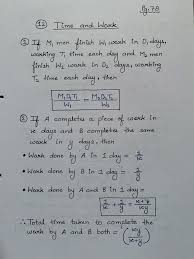 Pg:78
(12) Time and Work
① If M₁ men finish W₁ work in D₁ days,
working T₁ time each day and M₂ men
finish W₂ work in D₂ days, working
T₂ time each day, then
M₁D₁T₁/W₁ = M₂D₂T₂/W₂
② If A completes a piece of work in
x days and B completes the same
work in y days, then
• Work done by A in 1 day = 1/x
• Work done by B in 1 day = 1/y
• Work done by A and B in 1 day =
1/x + 1/y = x+y/xy
∴ Total time taken to complete the
work by A and B both = (xy/x+y)